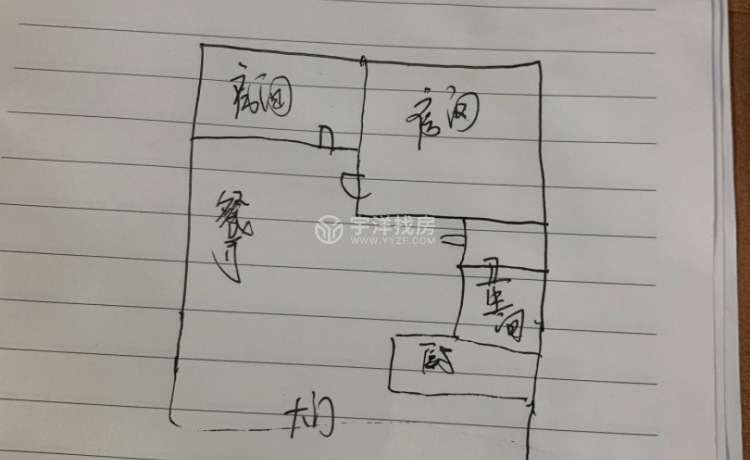 房间
房间
餐厅
宇洋找房
WWW.YYZF.COM
卫生间
厨
大门